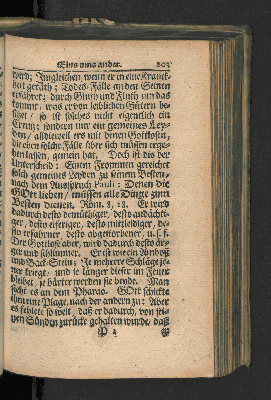 Eins ums ander. 203
wird; Ingleichen, wenn er in eine Kranck-
heit geräth; Todes-Fälle an den Seinen
erfähret; durch Gluth und Fluth um das
kommt, was er von leiblichen Gütern be-
sitzet / so ist solches nicht eigentlich ein
Creutz; sondern nur ein gemeines Ley-
den / alldieweil ers mit denen Gottlosen,
die eben solche Fälle über sich müssen erge-
hen lassen, gemein hat. Doch ist das der
Unterscheid: Einem Frommen gereichet
solch gemeines Leyden zu seinem Besten,
nach dem Ausspruch Pauli: Denen die
GOtt lieben / müssen alle Dinge zum
Besten dienen, Röm. 8, 28. Er wird
dadurch desto demüthiger, desto andächti-
ger, desto eifriger, desto mitleidiger, de-
sto erfahrner, desto abgestorbener, u. s. f.
Der Gottlose aber, wird dadurch desto är-
ger und schlimmer. Er ist wie ein Amboß
und Back-Stein: Je mehrere Schläge je-
ner kriegt, und je länger dieser im Feuer
bleibet, je härter werden sie beyde. Man
siehet es an dem Pharao. GOtt schickte
ihm eine Plage, nach der andern zu: Aber
es fehlete so weit, daß er dadurch, von sei-
nen Sünden zurücke gehalten wurde, daß